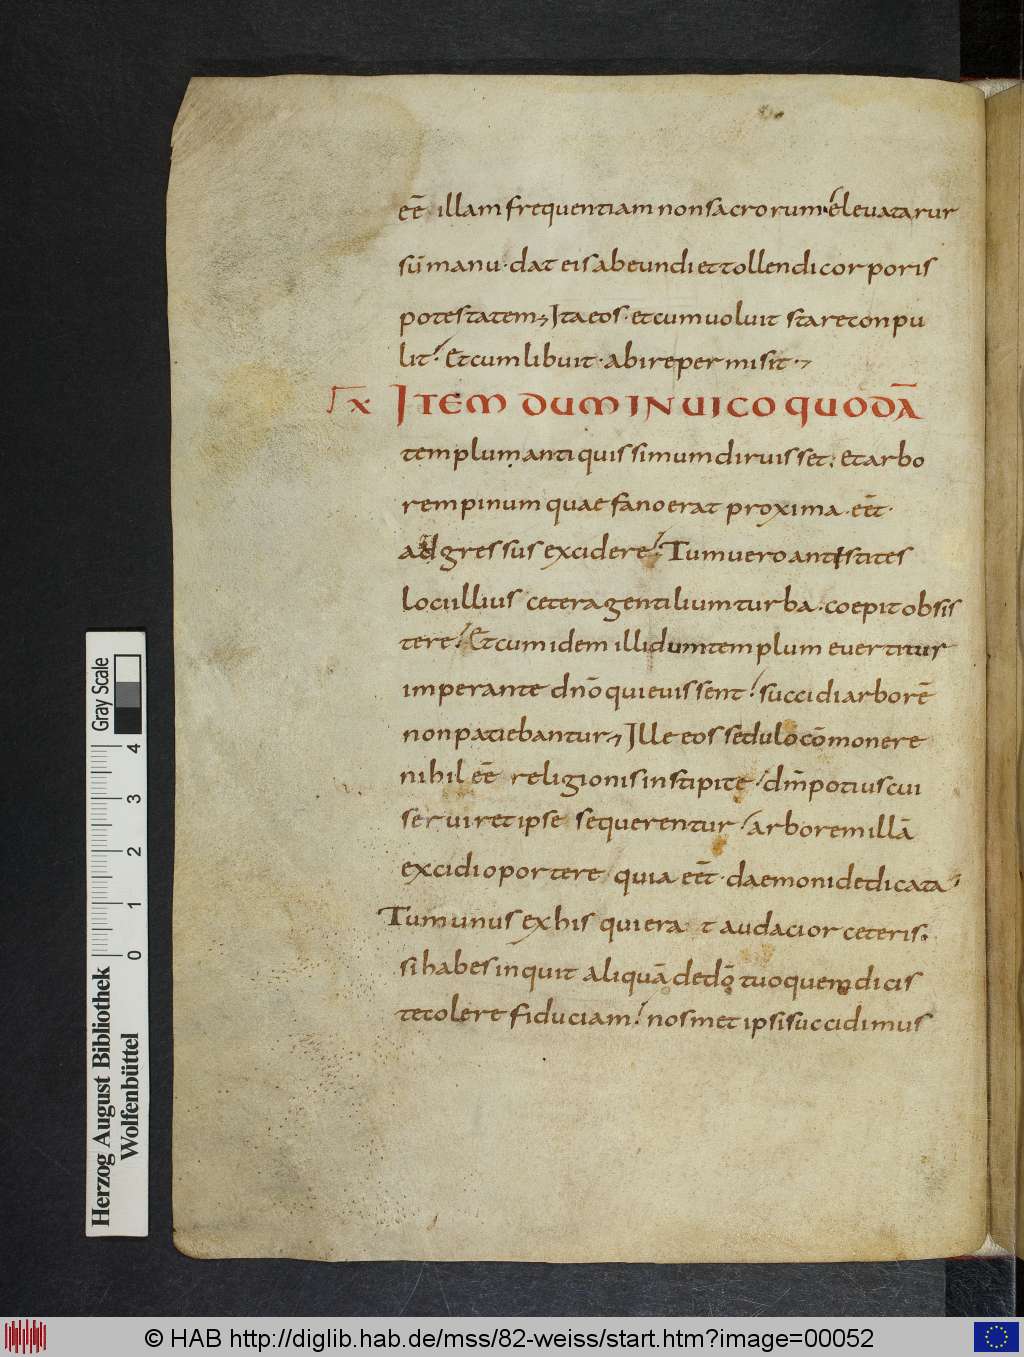 eē illam frequentiam non sacrorum. elevata rur
sū manu. dat eis abeundi et tollendi corporis
potestatem; Ita eos. et cum voluit stare conpu
lit. Et cum libuit. abire permisit.
ix ITEM DUM IN VICO QUODĀ
templum antiquissimum diruisset. et arbo
rem pinum quae fano erat proxima. eēt.
adgressus excidere. Tum vero antistites
loci illius ceteraq gentilium turba. coepit obsis
tere. Et cum idem illi dum templum evertitur
imperante dnō quievissent. succidi arborē
non patiebantur; Ille eos sedulo cōmonere
nihil eē religionis in stipite. dnm potius cui
serviret ipse sequerentur. arborem illā
excidi oportere quia eēt. daemoni dedicata.
Tum unus ex his qui erat audacior ceteris.
si habes inquit aliquā de dō tuo quem dicis
te colere fiduciam. nosmet ipsi succidimus
Herzog August Bibliothek
Wolfenbüttel
0 1 2 3 4
Gray Scale
© HAB http://diglib.hab.de/mss/82-weiss/start.htm?image=00052